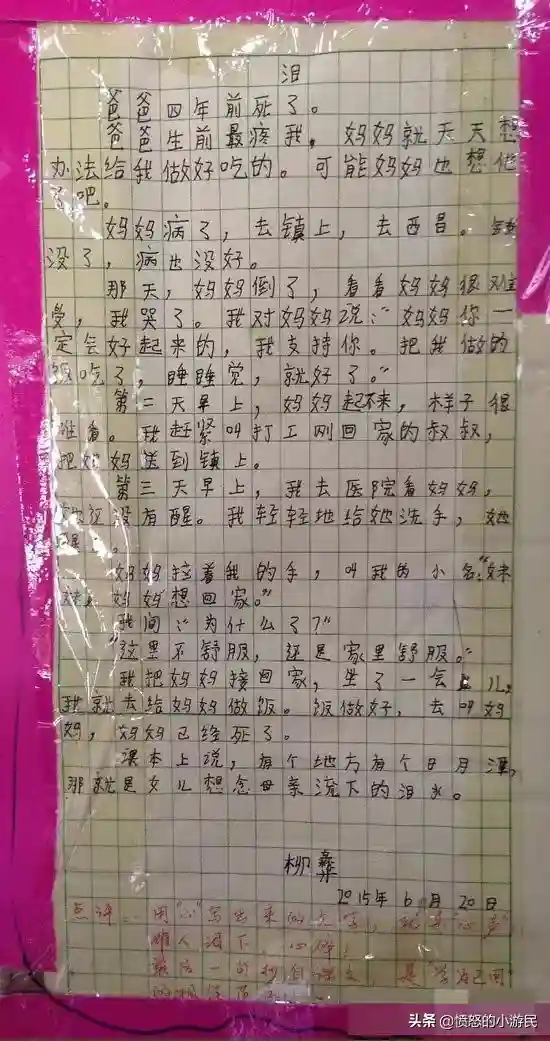 泪
爸爸四年前死了。
爸爸生前最疼我，妈妈就天天想
办法给我做好吃的。可能妈妈也想他
了吧。
妈妈病了，去镇上，去西昌。钱
没了，病也没好。
那天，妈妈倒了，看看妈妈很难
受，我哭了。我对妈妈说：“妈妈你一
定会好起来的，我支持你。把我做的
饭吃了，睡睡觉，就好了。”
第二天早上，妈妈起不来，样子很
难看。我赶紧叫打工刚回家的叔叔，
把妈妈送到镇上。
第三天早上，我去医院看妈妈，
她还没有醒。我轻轻地给她洗手，她
醒了。
妈妈拉着我的手，叫我的小名：“妹
妹，妈妈想回家。”
我问：“为什么了？”
“这里不舒服，还是家里舒服。”
我把妈妈接回家，坐了一会儿，
我就去给妈妈做饭。饭做好，去叫妈
妈，妈妈已经死了。
课本上说，有个地方有个日月潭，
那就是女儿想念母亲流下的泪水。
柳彝
2015年6月20日
点评：用“心”写出来的文字，就是“心声”
催人泪下，
头条 @愤怒的小游民